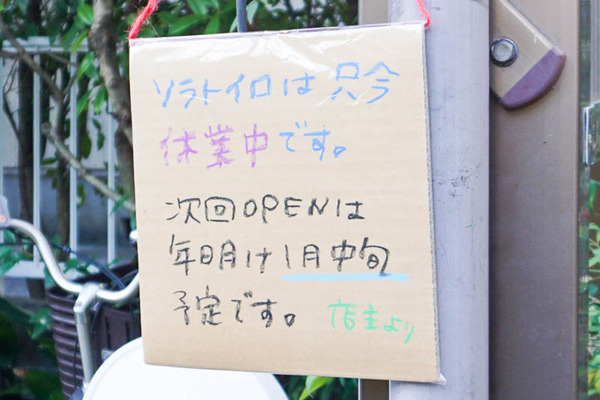 ソラトイロは只今
休業中です。
次回OPENは
年明け1月中旬
予定です。 店主より